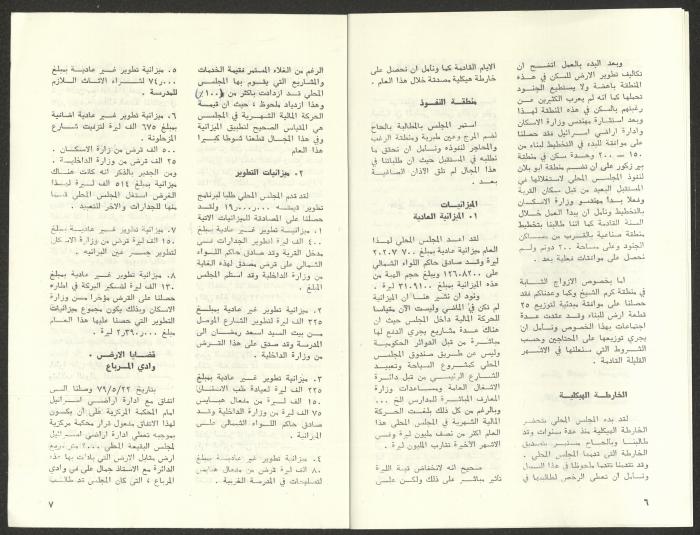 وبعد البدء بالعمل اتضح ان
تكاليف تطوير الارض للسكن في هذه
المنطقة باهضة ولا يستطيع الجنود
تحملها كما انه لم يعرب الكثيرين من
رغبتهم بالسكن في هذه المنطقة لهذا
وبعد استشارة مهندسي وزارة الاسكان
وادارة اراضي اسرائيل فقد حصلنا
على موافقة للبدء في التخطيط لبناء من
١٥٠ ــ ٢٠٠ وحدة سكن في منطقة
بير زكور على ان تضم منطقة ابو بلان
لنفوذ المجلس المحلي لاستغلالها في
المستقبل البعيد من قبل سكان القرية
وفعلا بدأ مهندسو وزارة الاسكان
بالتخطيط ونأمل ان يبدأ العمل خلال
السنة القادمة كما اننا طالبنا بتخطيط
منطقة صناعية بالقرب من مساكن
الجنود وعلى مساحة ٢٠٠ دونم ولم
نحصل على موافقات فعلية بعد .
اما بخصوص الازواج الشابة
في منطقة كرم الشيخ وكما وعدناكم فقد
حصلنا على موافقة مبدئية لتوزيع ٢٥
قطعة ارض للبناء وقد عقدت عدة
اجتماعات بهذا الخصوص ونأمل ان
يجري توزيعها على المحتاجين وحسب
الشروط التي سنعلنها في الاشهر
القليلة القادمة .
الخارطة الهيكلية
لقد بدء المجلس المحلي بتحضير
الخارطة الهيكلية منذ عدة سنوات وقد
طالبنا وبالحاح مستمر بتصديق
الخارطة التي قدمها المجلس المحلي .
وقد تقدمنا تقدما ملحوظا في هذا المجال
ونأمل ان تعطى الرخص لطالبيها في
الايام القادمة كما ونأمل ان نحصل على
خارطة هيكلية مصدقة خلال هذا العام .
منطقة النفوذ
استمر المجلس بالمطالبة بالحاح
لضم المرج وعين طبرية ومنطقة الرغب
والمحاجر لنفوذه ونأمل ان تحقق ما
نطلبه في المستقبل حيث ان طلباتنا في
هذا المجال لم تلق الآذان الصاغية
بعد .
الميزانيات
١. الميزانية العادية
لقد اعد المجلس المحلي لهذا
العام ميزانية عادية بمبلغ ٢٠٢٠٧ ٧٠٠
ليرة وقد صدق حاكم اللواء الشمالي
على ١٢٦٠٨٢٠٠ ويبلغ حجم الهبة من
هذه الميزانية بمبلغ ٣١٠٩١٠٠ ليرة .
ونود ان نشير هنا ان الميزانية
لم تكن في الماضي وليست الان مقياسا
للحركة المالية داخل المجلس حيث ان
هناك عدة مشاريع يجري الدفع لها
مباشرة من قبل الدوائر الحكومية
وليس عن طريق صندوق المجلس
المحلي كمشروع السياحة وتعبيد
الشارع الرئيسي من قبل دائرة
الاشغال العامة ومساعدات وزارة
المعارف المباشرة للمدارس الخ ...
وبالرغم من كل ذلك بلغت الحركة
المالية الشهرية في المجلس المحلي هذا
العام اكثر من نصف مليون ليرة وفي
الاشهر الاخيرة تقارب المليون ليرة .
صحيح انه لانخفاض قيمة الليرة
تأثير مباشر على ذلك ولكن على
٦
الرغم من الغلاء المستمر فقيمة الخدمات
والمشاريع التي يقوم بها المجلس
المحلي قد ازدادت بأكثر من (١٠٠٪)
وهذا ازدياد ملحوظ ، حيث ان قيمة
الحركة المالية الشهرية في المجلس
هي المقياس الصحيح لتطبيق الميزانية
وفي هذا المجال قطعنا شوطا كبيرا
هذا العام
٢. ميزانيات التطوير
لقد قدم المجلس المحلي طلبا لبرنامج
تطوير قيمته ١٩٠٠٠٠٠٠ ولقد
حصلنا على المصادقة للميزانيات الآتية
١. ميزانية تطوير غير عادية بمبلغ
٤٠٠ الف ليرة لتطوير الجدارات في
مدخل القرية وقد صادق حاكم اللواء
الشمالي على قرض بصدق لهذه الغاية
من وزارة الداخلية وقد استلم المجلس
المبلغ .
٢. ميزانية تطوير غير عادية بمبلغ
٢٢٥ الف ليرة لتطوير الشارع الموصل
من بيت السيد اسعد رمضان الى
المدرسة وقد صدق على هذا القرض
من وزارة الداخلية .
٣. ميزانية تطوير غير عادية بمبلغ
٢٢٥ الف ليرة لعيادة طب الاسنان
١٥٠ الف ليرة من مفعال هبايس
٧٥ الف ليرة من وزارة الداخلية وقد
صادق حاكم اللواء الشمالي على
الميزانية .
٤. ميزانية تطوير غير عادية بمبلغ
٨٠ الف ليرة قرض من مفعال هبايس
لتصليحات في المدرسة الغربية .
٥. ميزانية تطوير غير عادية بمبلغ
٧٤٠٠٠ لشراء الاثاث اللازم
للمدرسة .
٦. ميزانية تطوير غير عادية اضافية
بمبلغ ٦٧٥ الف ليرة لتزفيت شارع
المزحلوقة .
٥٠٠ الف قرض من وزارة الاسكان .
٢٥ الف قرض من وزارة الداخلية .
ومن الجدير بالذكر انه كانت هناك
ميزانية بمبلغ ٥١٤ الف ليرة لهذا
الغرض استغل المجلس المحلي قسما
منها للجدارات والآخر للتعبيد .
٧. ميزانية تطوير غير عادية بمبلغ
١٥٠ الف ليرة قرض من وزارة الاسكان
لتطوير جسر عين البرانيه .
٨. ميزانية تطوير غير عادية بمبلغ
١٣٠ الف ليرة لتسكير البركة في اطاره
حصلنا على القرض مؤخرا من وزارة
الاسكان وبذلك يكون مجموع ميزانيات
التطوير التي حصلنا عليها هذا العام
مبلغ ٢٣٩٠٠٠٠ ليرة .
قضايا الارض .
وادي المرباع
بتاريخ ٧٩/٥/٢٢ وصلنا الى
اتفاق مع ادارة اراضي اسرائيل
امام المحكمة المركزية على ان يكون
لهذا الاتفاق مفعول قرار محكمة مركزية
بموجبه تعطي ادارة اراضي اسرائيل
لمجلس البقيعة المحلي ٢٠٠٠ متر مربع
ارض مقابل الارض التي باعت بها هذا
الدائرة مع الاستاذ جمال علي في وادي
المرباع ، التي كان المجلس قد طالب
٧